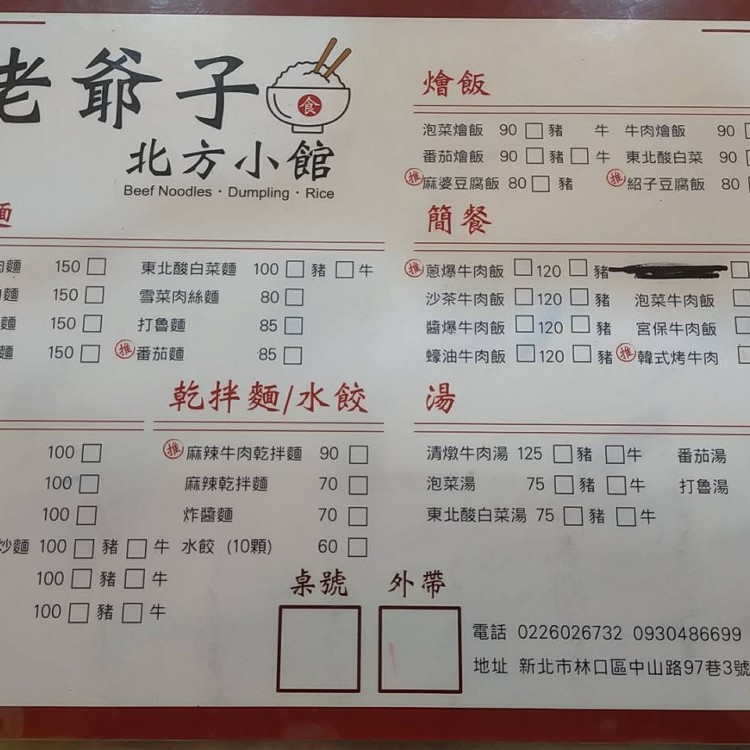 老爺子
食
北方小館
Beef Noodles · Dumpling · Rice
麵
肉麵 150 □ 東北酸白菜麵 100 □ 豬 □ 牛
麵 150 □ 雪菜肉絲麵 80 □
麵 150 □ 打魯麵 85 □
麵 150 □ 推 番茄麵 85 □
乾拌麵/水餃
100 □ 推 麻辣牛肉乾拌麵 90 □
100 □ 麻辣乾拌麵 70 □
100 □ 炸醬麵 70 □
炒麵 100 □ 豬 □ 牛 水餃 (10顆) 60 □
100 □ 豬 □ 牛
100 □ 豬 □ 牛
燴飯
泡菜燴飯 90 □ 豬 牛 牛肉燴飯 90 □
番茄燴飯 90 □ 豬 □ 牛 東北酸白菜 90 □
推 麻婆豆腐飯 80 □ 豬 推 紹子豆腐飯 80 □
簡餐
推 蔥爆牛肉飯 □ 120 □ 豬 □
沙茶牛肉飯 □ 120 □ 豬 泡菜牛肉飯 □
醬爆牛肉飯 □ 120 □ 豬 宮保牛肉飯 □
蠔油牛肉飯 □ 120 □ 豬 推 韓式烤牛肉 □
湯
清燉牛肉湯 125 □ 豬 □ 牛 番茄湯
泡菜湯 75 □ 豬 □ 牛 打魯湯
東北酸白菜湯 75 □ 豬 □ 牛
桌號 外帶
電話 0226026732 0930486699
地址 新北市林口區中山路97巷3號